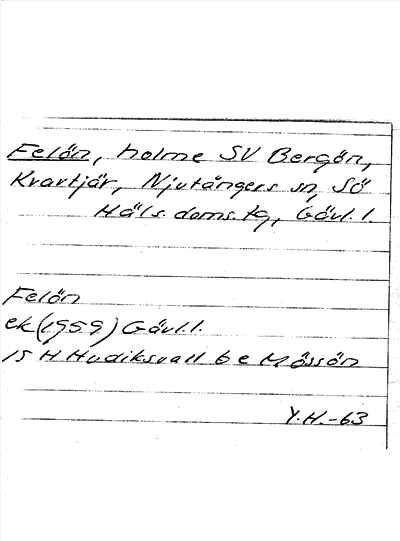 Felön, holme SV Bergön,
Kvartjär, Njutångers sn, Sö
Häls. doms. tg, Gävl. l.
Felön
ek (1959) Gävl. l.
15 H Hudiksvall 6 e Mössön
Y.H.-63